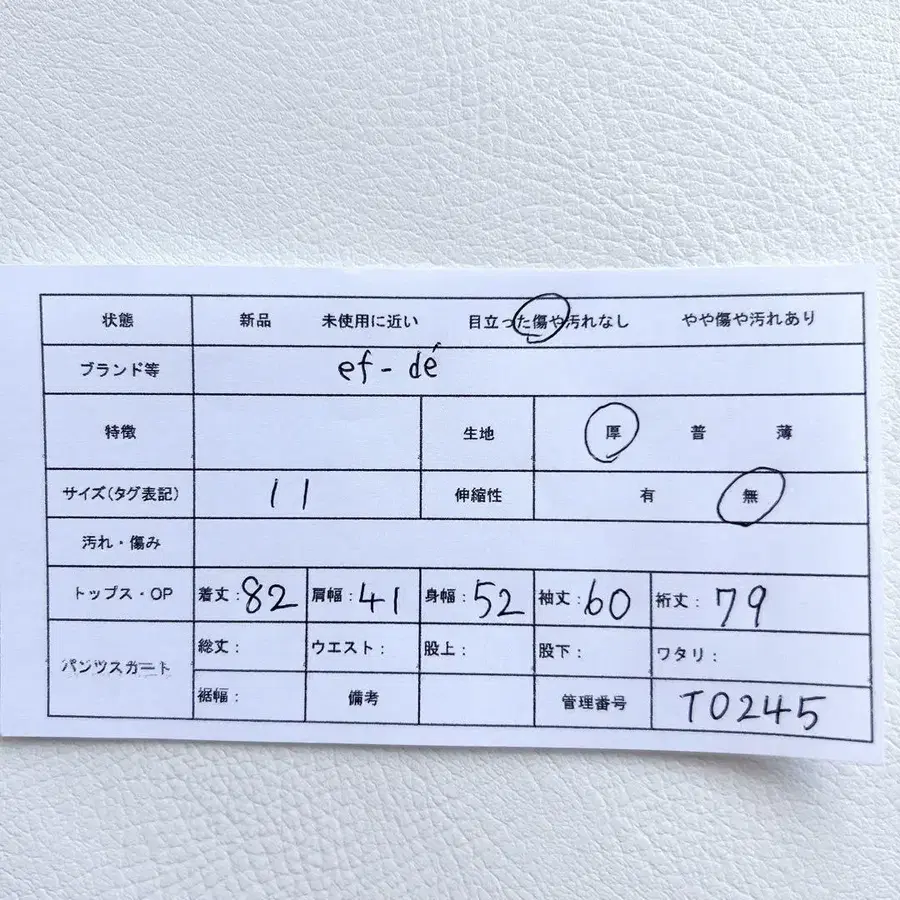 状態 新品 未使用に近い 目立った傷や汚れなし やや傷や汚れあり
ブランド等 ef-dé
特徴 生地 厚 普 薄
サイズ(タグ表記) 11 伸縮性 有 無
汚れ・傷み
トップス・OP 着丈:82 肩幅:41 身幅:52 袖丈:60 裄丈:79
パンツスカート 総丈: ウエスト: 股上: 股下: ワタリ:
裾幅: 備考 管理番号 T0245